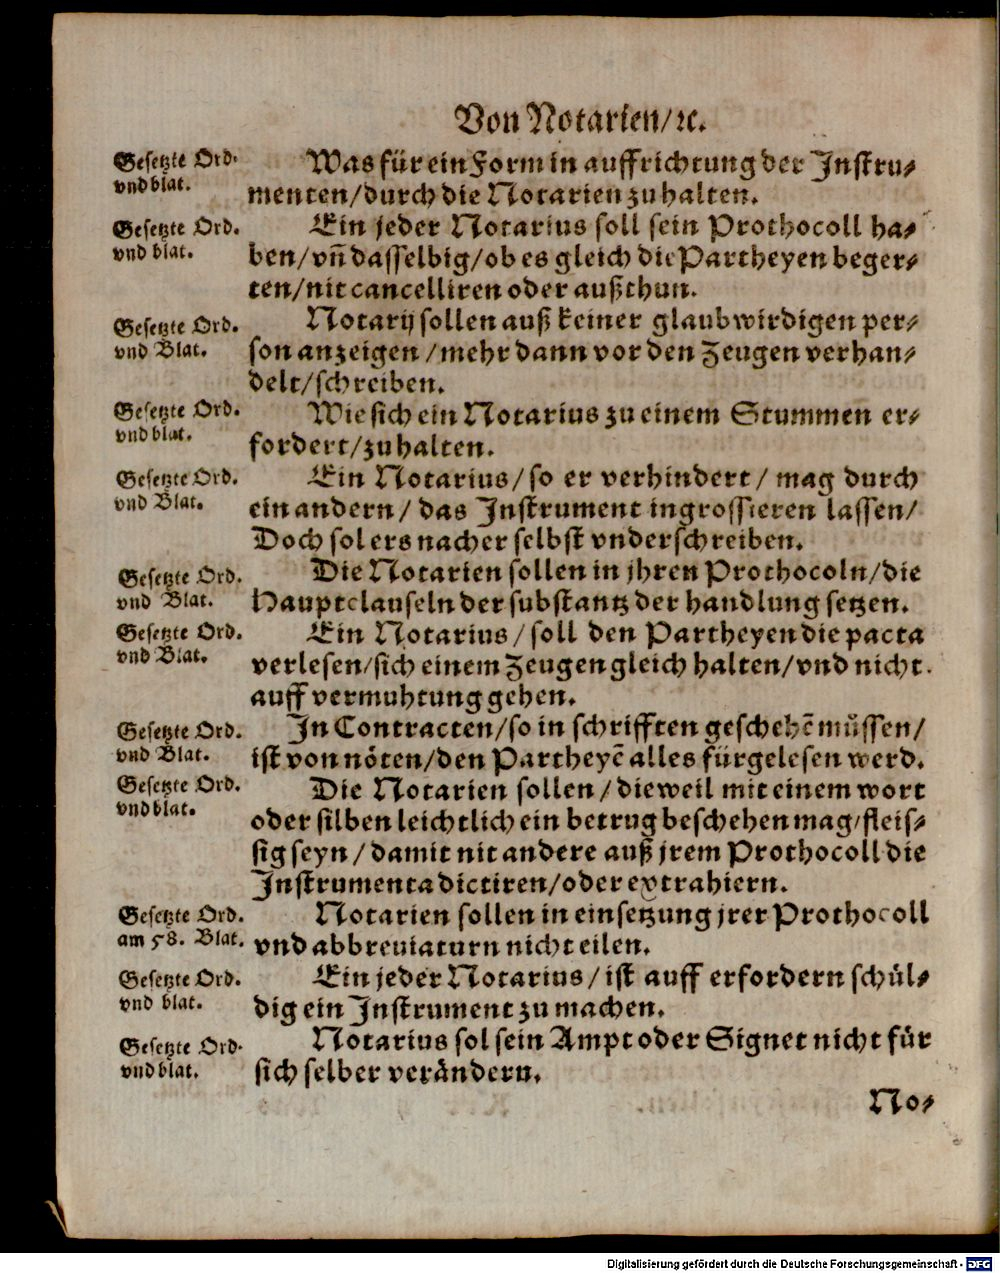 Von Notarien/ꝛc.
Gesetzte Ord.
vnd blat.
Was für ein Form in auffrichtung der Instru⸗
menten/durch die Notarien zu halten.
Gesetzte Ord.
vnd blat.
Ein jeder Notarius soll sein Prothocoll ha⸗
ben/vñ dasselbig/ob es gleich die Partheyen beger⸗
ten/nit cancelliren oder außthun.
Gesetzte Ord.
vnd Blat.
Notarij sollen auß keiner glaubwirdigen per⸗
son anzeigen/mehr dann vor den Zeugen verhan⸗
delt/schreiben.
Gesetzte Ord.
vnd blat.
Wie sich ein Notarius zu einem Stummen er⸗
fordert/zuhalten.
Gesetzte Ord.
vnd Blat.
Ein Notarius/so er verhindert/mag durch
ein andern/das Instrument ingrossieren lassen/
Doch sol ers nacher selbst vnderschreiben.
Gesetzte Ord.
vnd Blat.
Die Notarien sollen in jhren Prothocoln/die
Hauptclauseln der substantz der handlung setzen.
Gesetzte Ord.
vnd Blat.
Ein Notarius/soll den Partheyen die pacta
verlesen/sich einem Zeugen gleich halten/vnd nicht
auff vermuhtung gehen.
Gesetzte Ord.
vnd Blat.
In Contracten/so in schrifften geschehẽ müssen/
ist von nöten/den Partheyẽ alles fürgelesen werd.
Gesetzte Ord.
vnd blat.
Die Notarien sollen/dieweil mit einem wort
oder silben leichtlich ein betrug beschehen mag/fleis⸗
sig seyn/damit nit andere auß jrem Prothocoll die
Instrumenta dictiren/oder extrahiern.
Gesetzte Ord.
am 58. Blat.
Notarien sollen in einsetzung jrer Prothocoll
vnd abbreuiaturn nicht eilen.
Gesetzte Ord.
vnd blat.
Ein jeder Notarius/ist auff erfordern schül⸗
dig ein Instrument zu machen.
Gesetzte Ord.
vnd blat.
Notarius sol sein Ampt oder Signet nicht für
sich selber verändern.
No⸗
Digitalisierung gefördert durch die Deutsche Forschungsgemeinschaft - DFG